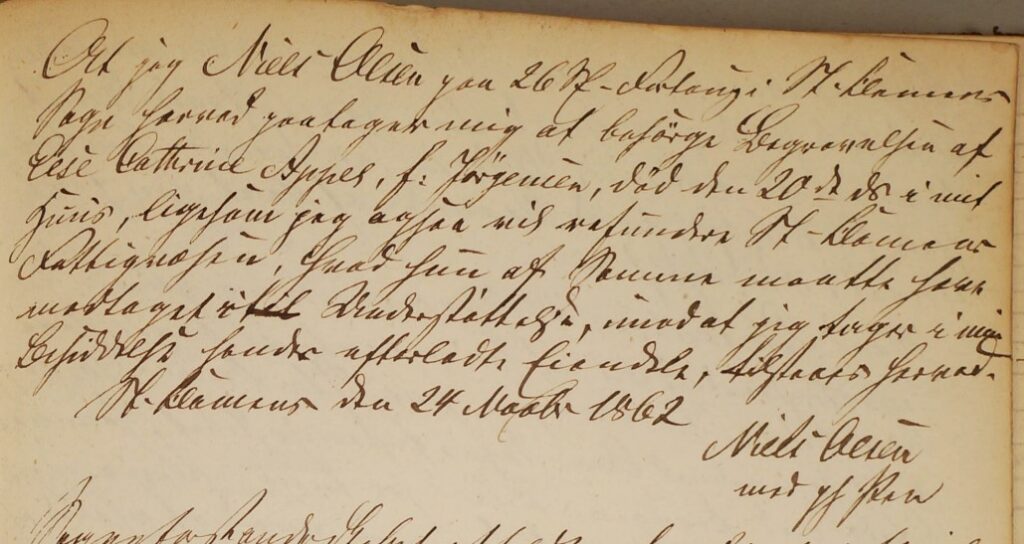 At jeg Niels Olsen paa 26 Sl-Fortoug i St. Clemens
Sogn herved paatager mig at besørge Begravelsen af
Else Cathrine Appel, f: Jørgensen, død den 20de ds i mit
Huus, ligesom jeg ogsaa vil refundere St-Clemens
Fattigvæsen, hvad hun af Samme maatte have
modtaget i Understøttelse, imod at jeg tager i min
Besiddelse hendes efterladte Eiendele, tilstaaes herved.
St. Clemens den 24 1862
Niels Olsen
med ph Pen